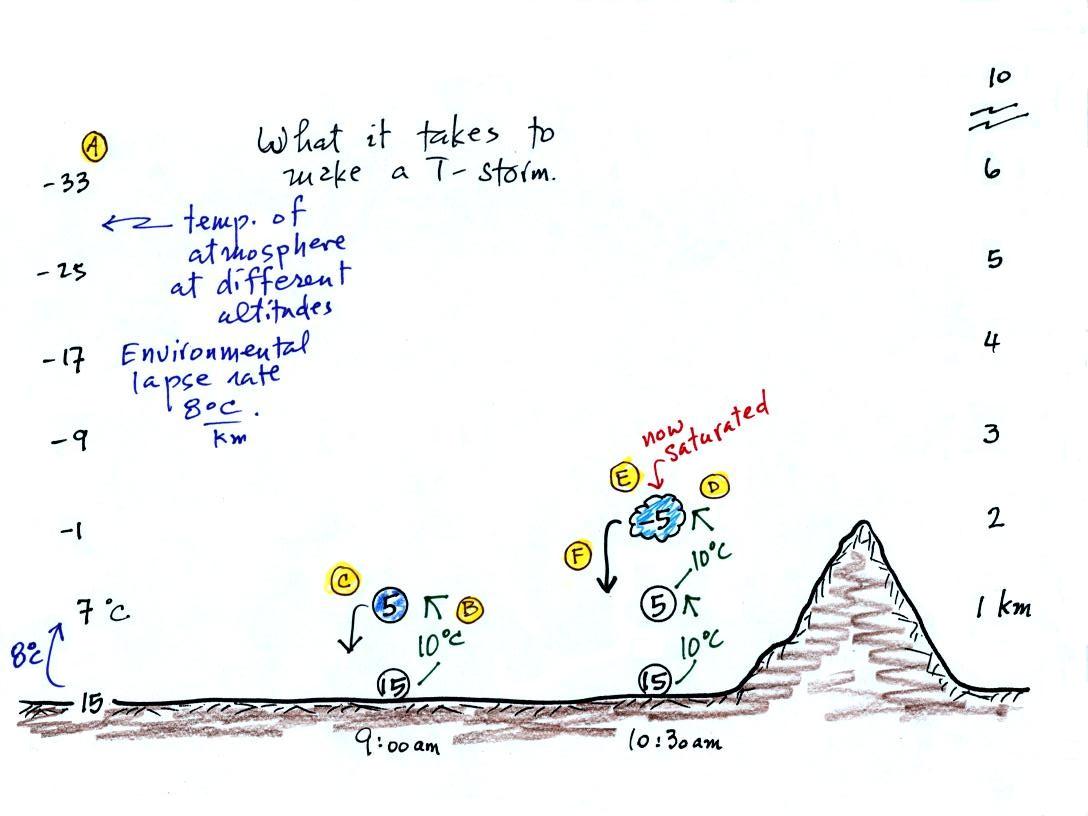 10
A
What it takes to
make a T-storm.
-33
6
temp. of
atmosphere
at different
altitudes
-25
5
-17
4
Environmental
lapse rate
8°C
km
-9
3
now
saturated
E
D
-5
-1
2
F
10°C
C
5
B
5
7 °C
1 km
10°C
10°C
8°C
15
15
15
9:00am
10:30am